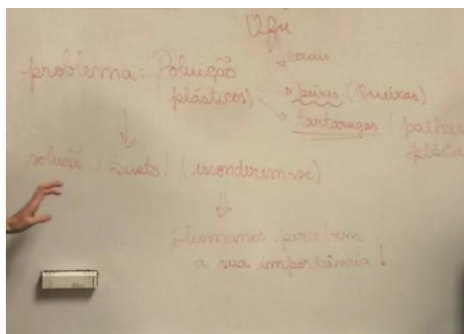 corais
problema: Poluição
plásticos)
peixes (Queixas)
tartarugas ( palhas
solução ( Susto! ( esconderem-se)
Humanos percebem
a sua importância!